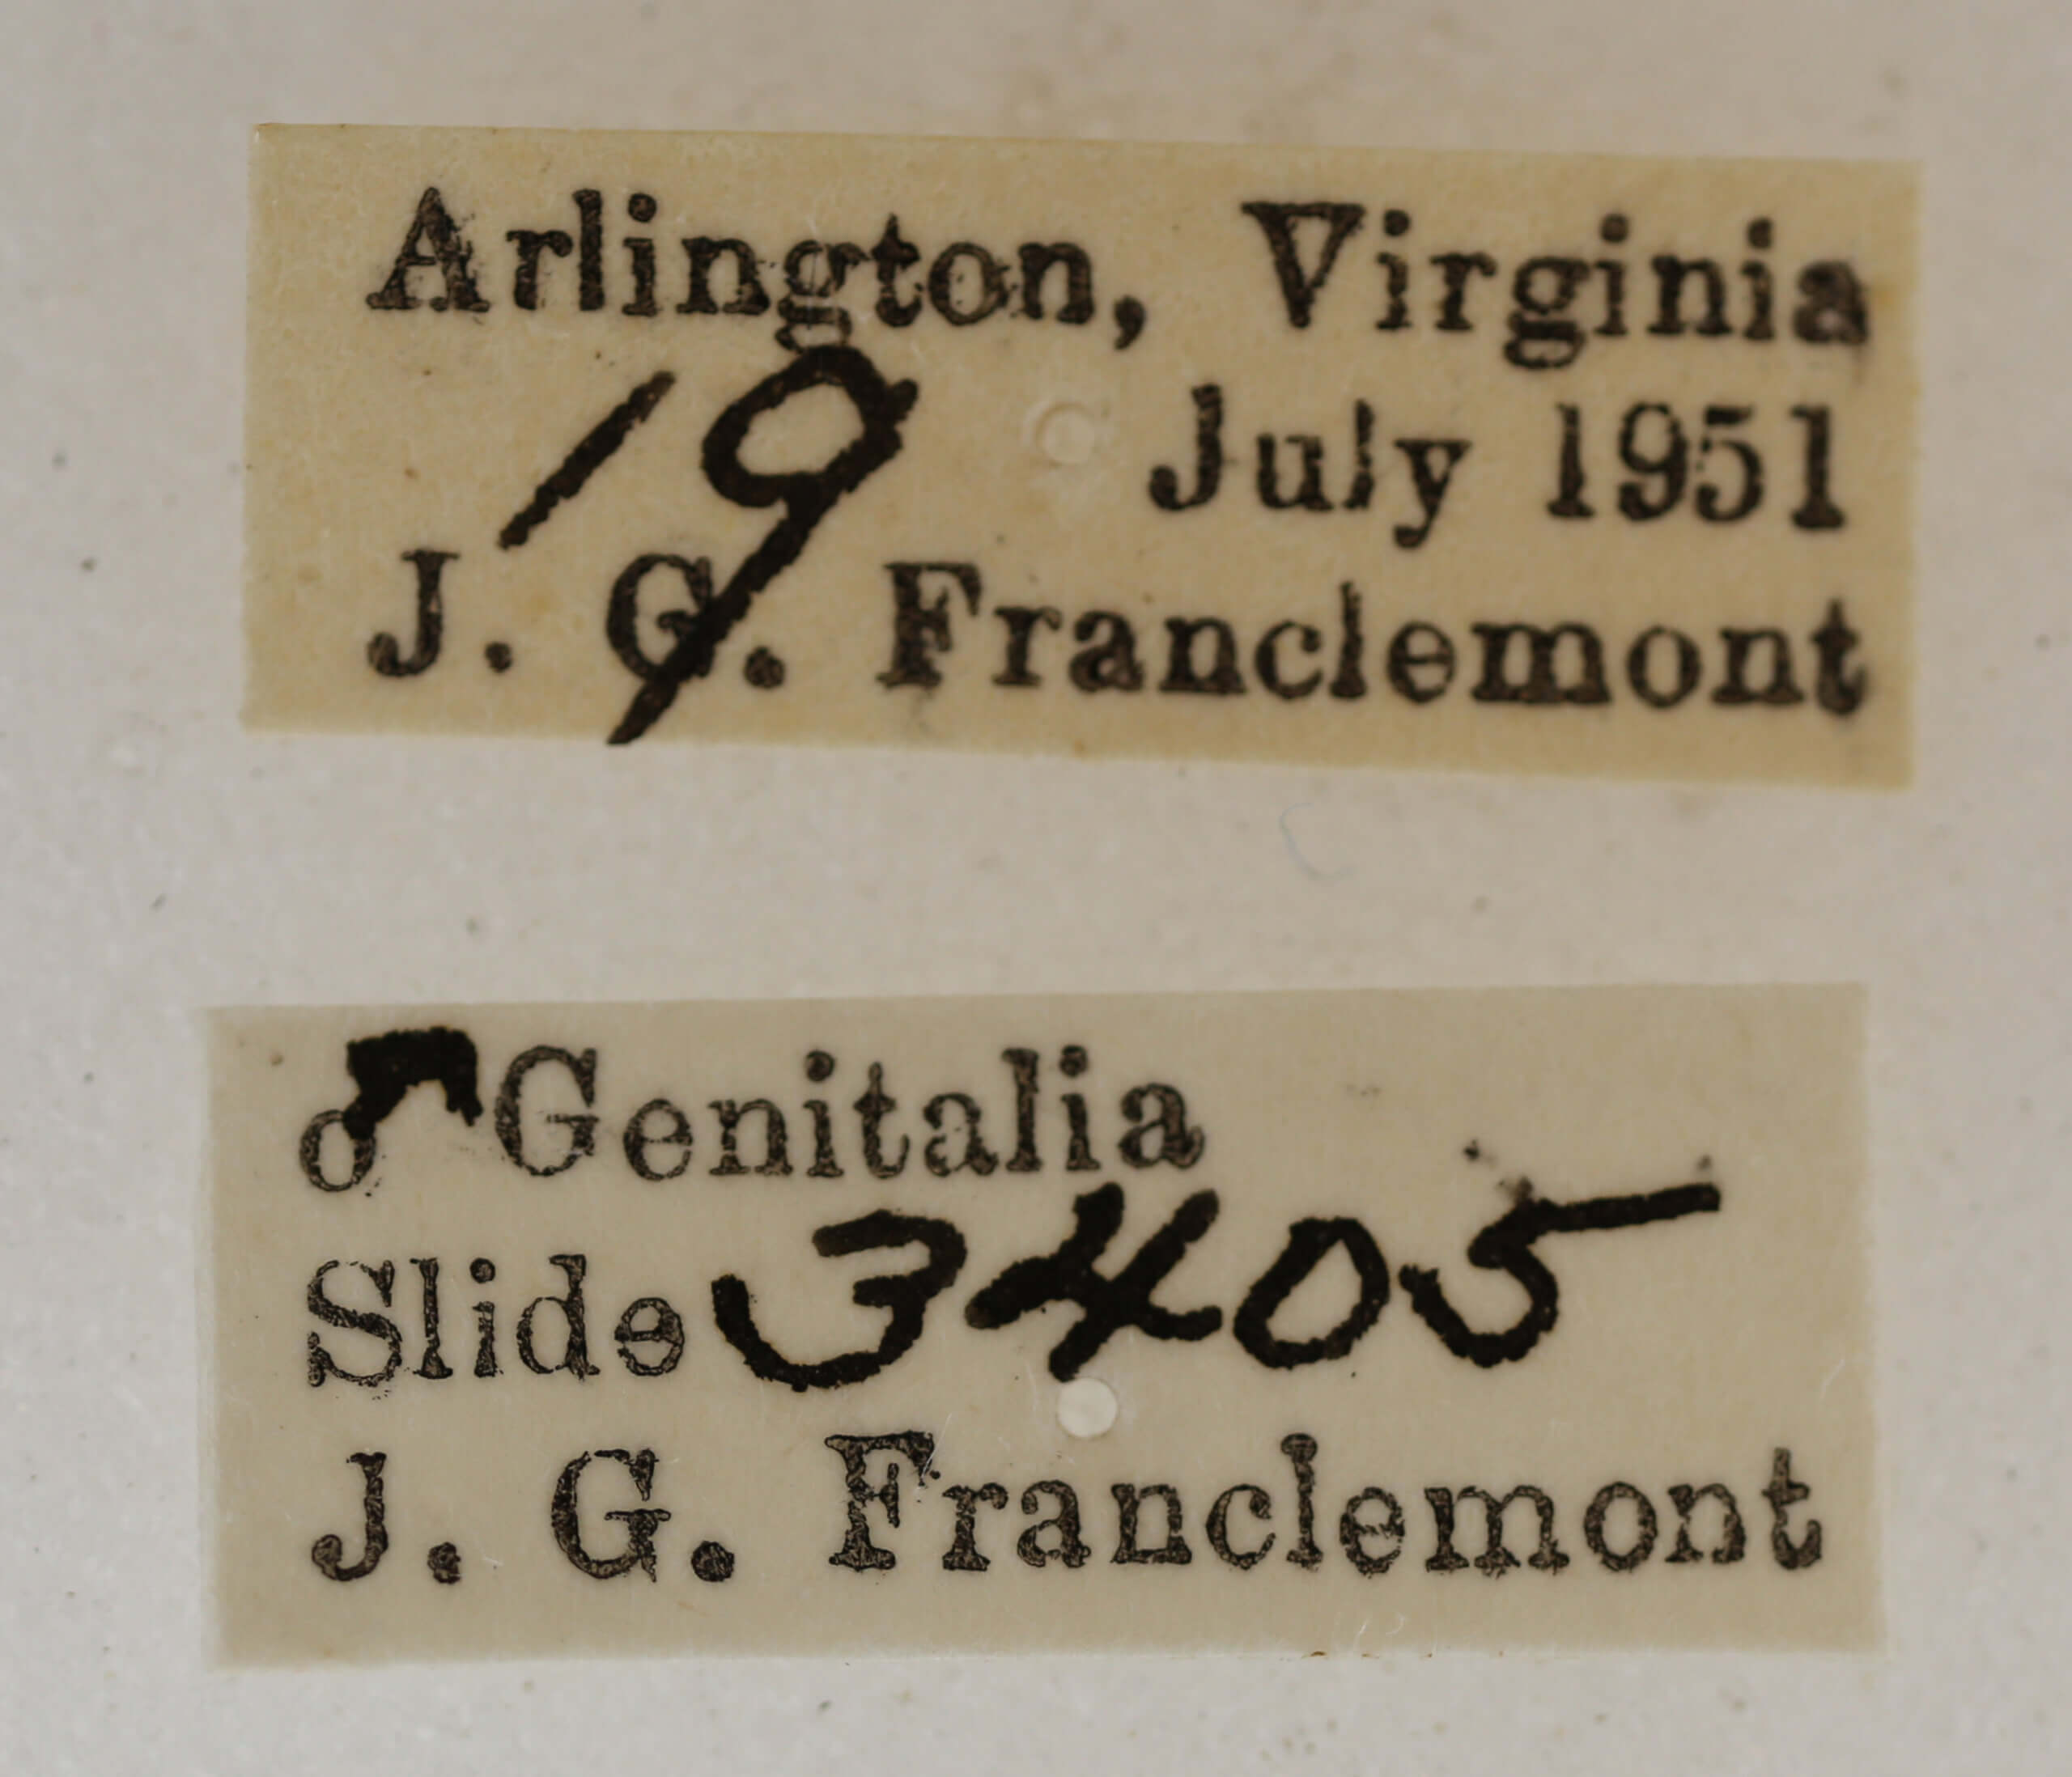 Arlington, Virginia
19 July 1951
J. G. Franclemont
♂ Genitalia
Slide 3405
J. G. Franclemont